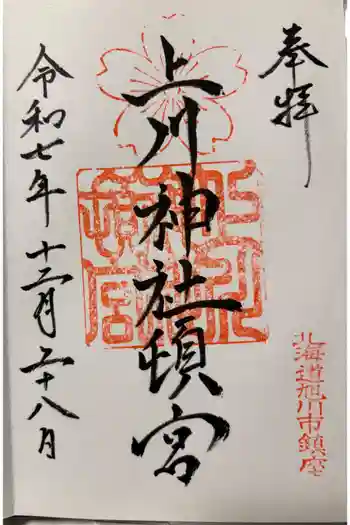 奉拝
北海道旭川市鎮座
上川神社頓宮
令和七年十二月二十八日